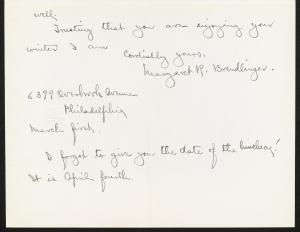 well.
Trusting that you are enjoying your
winter I am
Cordially yours,
Margaret R. Brendlinger.
6399 Overbrook Avenue
Philadelphia
March first.
I forgot to give you the date of the luncheon!
It is April fourth.